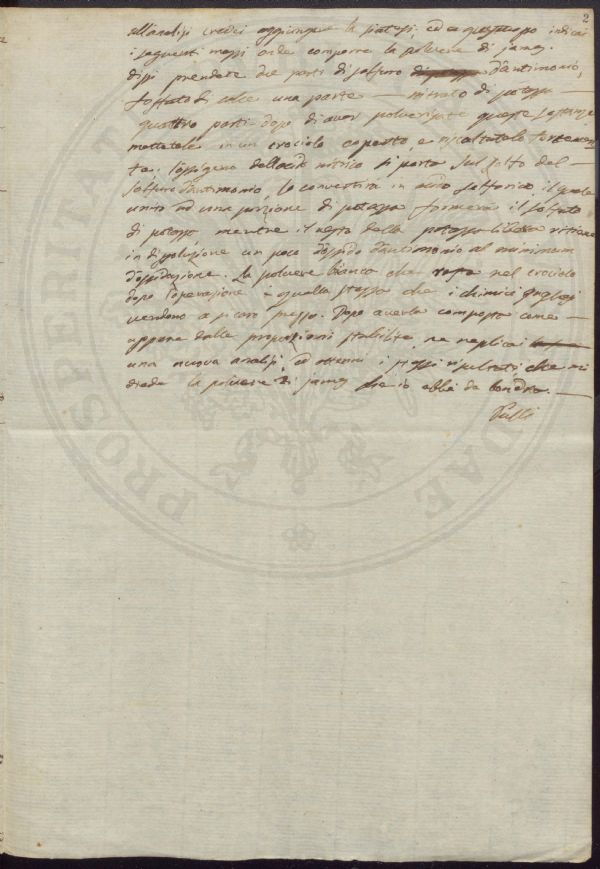 2
all'analisi credei aggiungere la sintesi, ed a quest'uopo indicai
i seguenti mezzi onde comporre la polvere di James.
dissi prendere due parti di solfuro d'antimonio,
fosfato di calce una parte — nitrato di potassa —
quattro parti dopo di aver polverizzate queste sostanze
mettetele in un crociolo coperto, e riscaldatele fortemen
te; l'ossigeno dell'acido nitrico si porta sul solfo del —
solfuro d'antimonio, lo convertirà in acido solforico il quale
unito ad una porzione di potassa formerà il solfato
di potassa mentre il resto della potassa libera ritiene
in dissoluzione un poco d'ossido d'antimonio al minimum
d'ossidazione. La polvere bianca che resta nel crociolo
dopo l'operazione è quella stessa che i chimici Inglesi
vendono a sì caro prezzo. Dopo averla composta come —
appare dalle proporzioni stabilite, ne replicai
una nuova analisi, ed ottenni i stessi risultati, che mi
diede la polvere di James che io ebbi da Londra. —
Pulli
PROSPERITATI
DAE